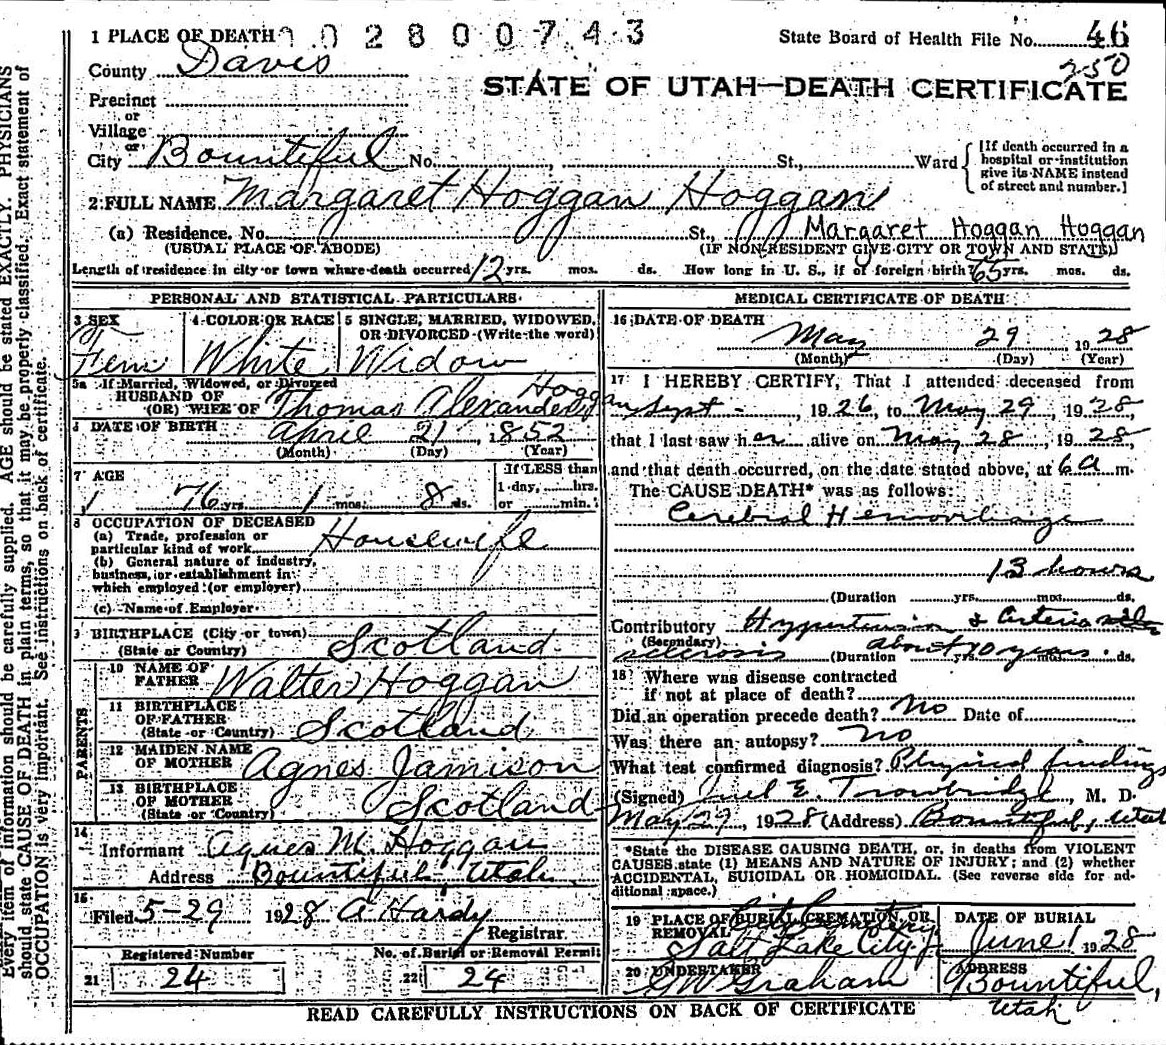 1 PLACE OF DEATH 002800743 State Board of Health File No. 46
County Davis 250
STATE OF UTAH—DEATH CERTIFICATE
Precinct
or
Village
or
City Bountiful No. , St., Ward [If death occurred in a hospital or institution give its NAME instead of street and number.]
2 FULL NAME Margaret Hoggan Hoggan
(a) Residence. No. St., Margaret Hoggan Hoggan
(USUAL PLACE OF ABODE) (IF NON-RESIDENT GIVE CITY OR TOWN AND STATE)
Length of residence in city or town where death occurred 12 yrs. mos. ds. How long in U. S., if of foreign birth? 65 yrs. mos. ds.
PERSONAL AND STATISTICAL PARTICULARS
3 SEX 4 COLOR OR RACE 5 SINGLE, MARRIED, WIDOWED,
OR DIVORCED (Write the word)
Fem White Widow
5a If Married, Widowed, or Divorced
HUSBAND OF Hoggan
(OR) WIFE OF Thomas Alexander
6 DATE OF BIRTH April 21, 1852
(Month) (Day) (Year)
7 AGE If LESS than
1 day, hrs.
76 yrs. 1 mos. 8 ds. or min.
8 OCCUPATION OF DECEASED
(a) Trade, profession or
particular kind of work Housewife
(b) General nature of industry,
business, or establishment in
which employed (or employer)
(c) Name of Employer
9 BIRTHPLACE (City or town)
(State or Country) Scotland
PARENTS
10 NAME OF
FATHER Walter Hoggan
11 BIRTHPLACE
OF FATHER
(State or Country) Scotland
12 MAIDEN NAME
OF MOTHER Agnes Jamison
13 BIRTHPLACE
OF MOTHER
(State or Country) Scotland
14
Informant Agnes M. Hoggan
Address Bountiful, Utah
15
Filed 5-29 1928 A Hardy
Registrar
Registered Number No. of Burial or Removal Permit
21 24 22 24
MEDICAL CERTIFICATE OF DEATH
16 DATE OF DEATH
May 29 1928
(Month) (Day) (Year)
17 I HEREBY CERTIFY, That I attended deceased from
Sept - , 1926, to May 29, 1928,
that I last saw her alive on May 28, 1928,
and that death occurred, on the date stated above, at 6 a m.
The CAUSE DEATH* was as follows:
Cerebral Hemorrhage
13 hours
(Duration yrs. mos. ds.
Contributory Hypertension & Arterio
(Secondary)
sclerosis (Duration about 10 years. yrs. mos. ds.
18 Where was disease contracted
if not at place of death?
Did an operation precede death? No Date of
Was there an autopsy? No
What test confirmed diagnosis? Physical findings
(Signed) E. Trowbridge, M. D.
May 29, 1928 (Address) Bountiful, Utah
*State the DISEASE CAUSING DEATH, or, in deaths from VIOLENT
CAUSES state (1) MEANS AND NATURE OF INJURY; and (2) whether
ACCIDENTAL, SUICIDAL OR HOMICIDAL. (See reverse side for ad-
ditional space.)
19 PLACE OF BURIAL, CREMATION, OR DATE OF BURIAL
REMOVAL City Cemetery
Salt Lake City June 1 1928
20 UNDERTAKER ADDRESS
GW Graham Bountiful,
Utah
READ CAREFULLY INSTRUCTIONS ON BACK OF CERTIFICATE
Every item of information should be carefully supplied. AGE should be stated EXACTLY. PHYSICIANS
should state CAUSE OF DEATH in plain terms, so that it may be properly classified. Exact statement of
OCCUPATION is very important. See instructions on back of certificate.